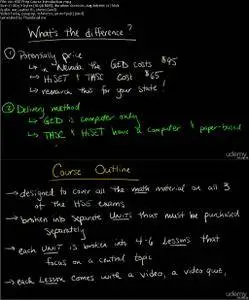 What's the difference?
① Potentially price
↳ in Nevada the GED costs $95
↳ HiSET & TASC cost $65
↳ research this for your state!
② Delivery method
↳ GED is computer only
↳ TASC & HiSET have a computer & paper-based
udemy
Course Outline
→ designed to cover all the math material on all 3
of the HSE exams
→ broken into separate UNITs that must be purchased
separately
→ each UNIT is broken into 4-6 lessons that
focus on a central topic
→ each Lesson comes with a video, a video quiz,
udemy